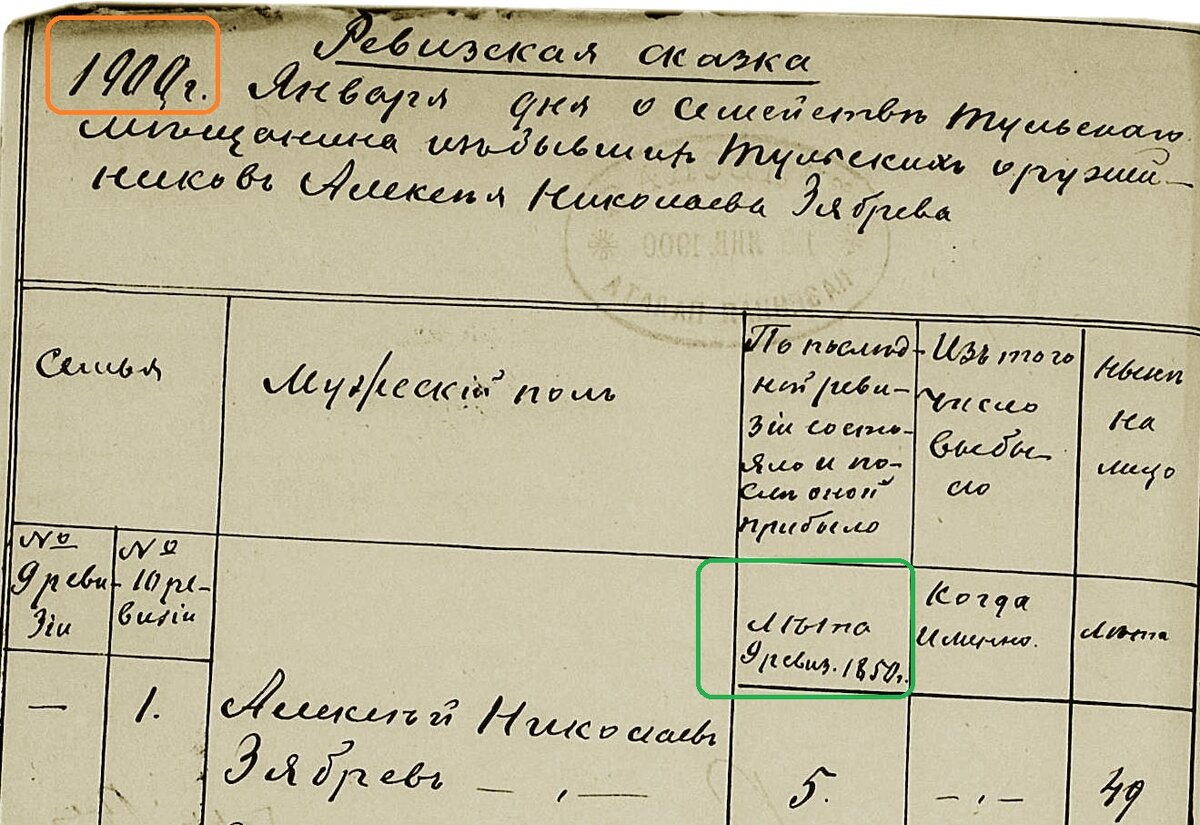 Ревизская сказка
1900г. Января дня о семействѣ Тульскаго
мѣщанина изъ бывшихъ Тульскихъ оружей-
никовъ Алексѣя Николаева Зябрева
15 ЯНВ. 1900
КАЗЕННАЯ ПАЛАТА
Семья
Мужескій полъ
По послѣд-
ней реви-
зіи состо-
яло и по-
слѣ оной
прибыло
Изъ того
число
выбы-
ло
Нынѣ
на
лицо
№
9 реви-
зіи
№
10 ре-
визіи
Лѣта
9 ревиз. 1850г.
Когда
имянно.
Лѣта
— 1. Алексѣй Николаевъ
Зябревъ — , — 5. — , — 49